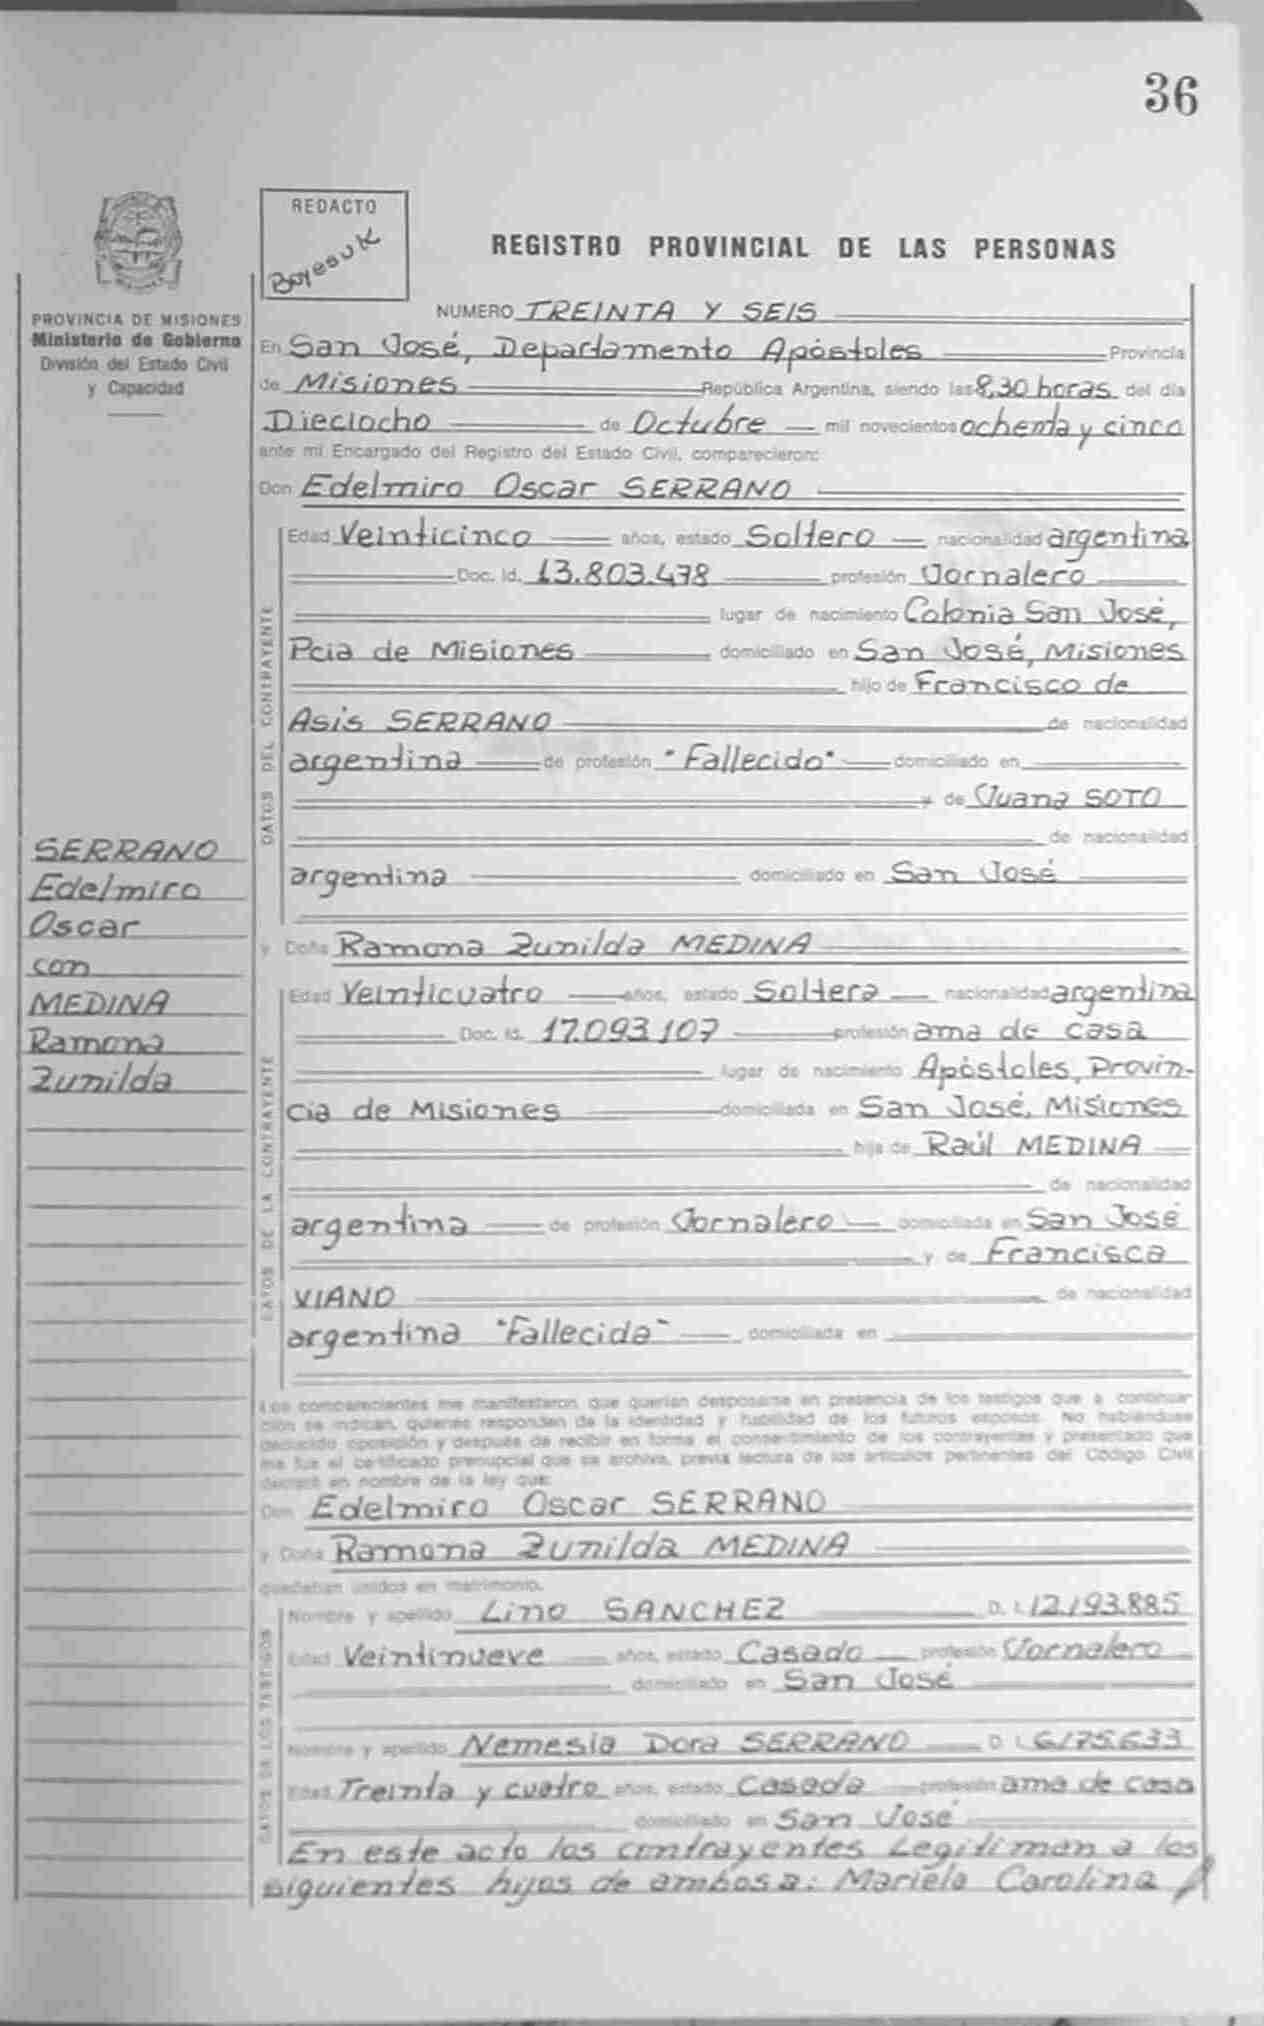 36
REDACTO
Boyesuk
REGISTRO PROVINCIAL DE LAS PERSONAS
PROVINCIA DE MISIONES
Ministerio de Gobierno
División del Estado Civil
y Capacidad
NUMERO TREINTA Y SEIS
En San José, Departamento Apóstoles Provincia
de Misiones República Argentina, siendo las 8,30 horas del día
Dieciocho de Octubre mil novecientos ochenta y cinco
ante mí Encargado del Registro del Estado Civil, comparecieron:
Don Edelmiro Oscar SERRANO
DATOS DEL CONTRAYENTE
Edad Veinticinco años, estado Soltero nacionalidad argentina
Doc. Id. 13.803.478 profesión Jornalero
lugar de nacimiento Colonia San José,
Pcia de Misiones domiciliado en San José, Misiones
hijo de Francisco de
Asis SERRANO de nacionalidad
argentina de profesión "Fallecido" domiciliado en
y de Juana SOTO
de nacionalidad
argentina domiciliado en San José
SERRANO
Edelmiro
Oscar
con
MEDINA
Ramona
Zunilda
y Doña Ramona Zunilda MEDINA
DATOS DE LA CONTRAYENTE
Edad Veinticuatro años, estado Soltera nacionalidad argentina
Doc. Id. 17.093.107 profesión ama de casa
lugar de nacimiento Apóstoles, Provin-
cia de Misiones domiciliada en San José, Misiones
hija de Raúl MEDINA
de nacionalidad
argentina de profesión Jornalero domiciliada en San José
y de Francisca
VIANO de nacionalidad
argentina "Fallecida" domiciliada en
Los comparecientes me manifestaron que querían desposarse en presencia de los testigos que a continua-
ción se indican, quienes responden de la identidad y habilidad de los futuros esposos. No habiéndose
deducido oposición y después de recibir en forma el consentimiento de los contrayentes y presentado que
me fue el certificado prenupcial que se archiva, previa lectura de los artículos pertinentes del Código Civil
declaré en nombre de la ley que:
Don Edelmiro Oscar SERRANO
y Doña Ramona Zunilda MEDINA
quedaban unidos en matrimonio.
DATOS DE LOS TESTIGOS
Nombre y apellido Lino SANCHEZ D. I. 12.193.885
Edad Veintinueve años, estado Casado profesión Jornalero
domiciliado en San José
Nombre y apellido Nemesia Dora SERRANO D. I. 6.175.633
Edad Treinta y cuatro años, estado Casada profesión ama de casa
domiciliado en San José
En este acto los contrayentes Legitiman a los
siguientes hijos de ambos a: Mariela Carolina